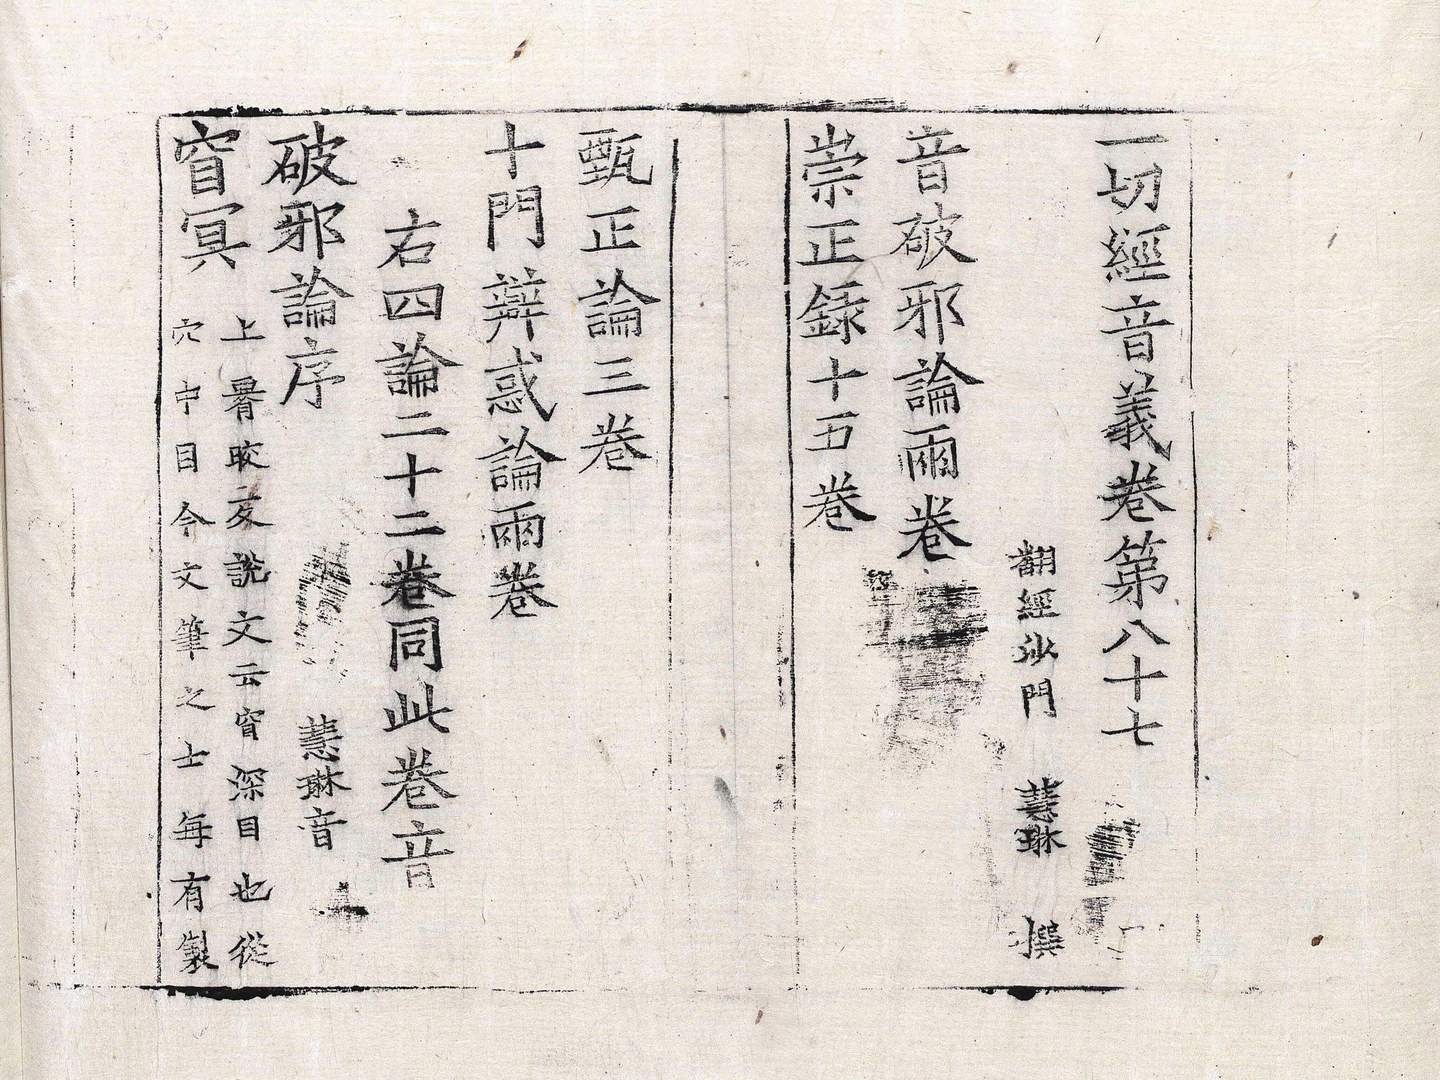 一切經音義卷第八十七
翻經沙門 慧琳 撰
音破邪論兩卷
崇正録十五卷
甄正論三卷
十門辯惑論兩卷
右四論二十二卷同此卷音
破邪論序 慧琳音
窅冥
上𣆶咬反說文云窅深目也從
穴中目今文筆之士每有製